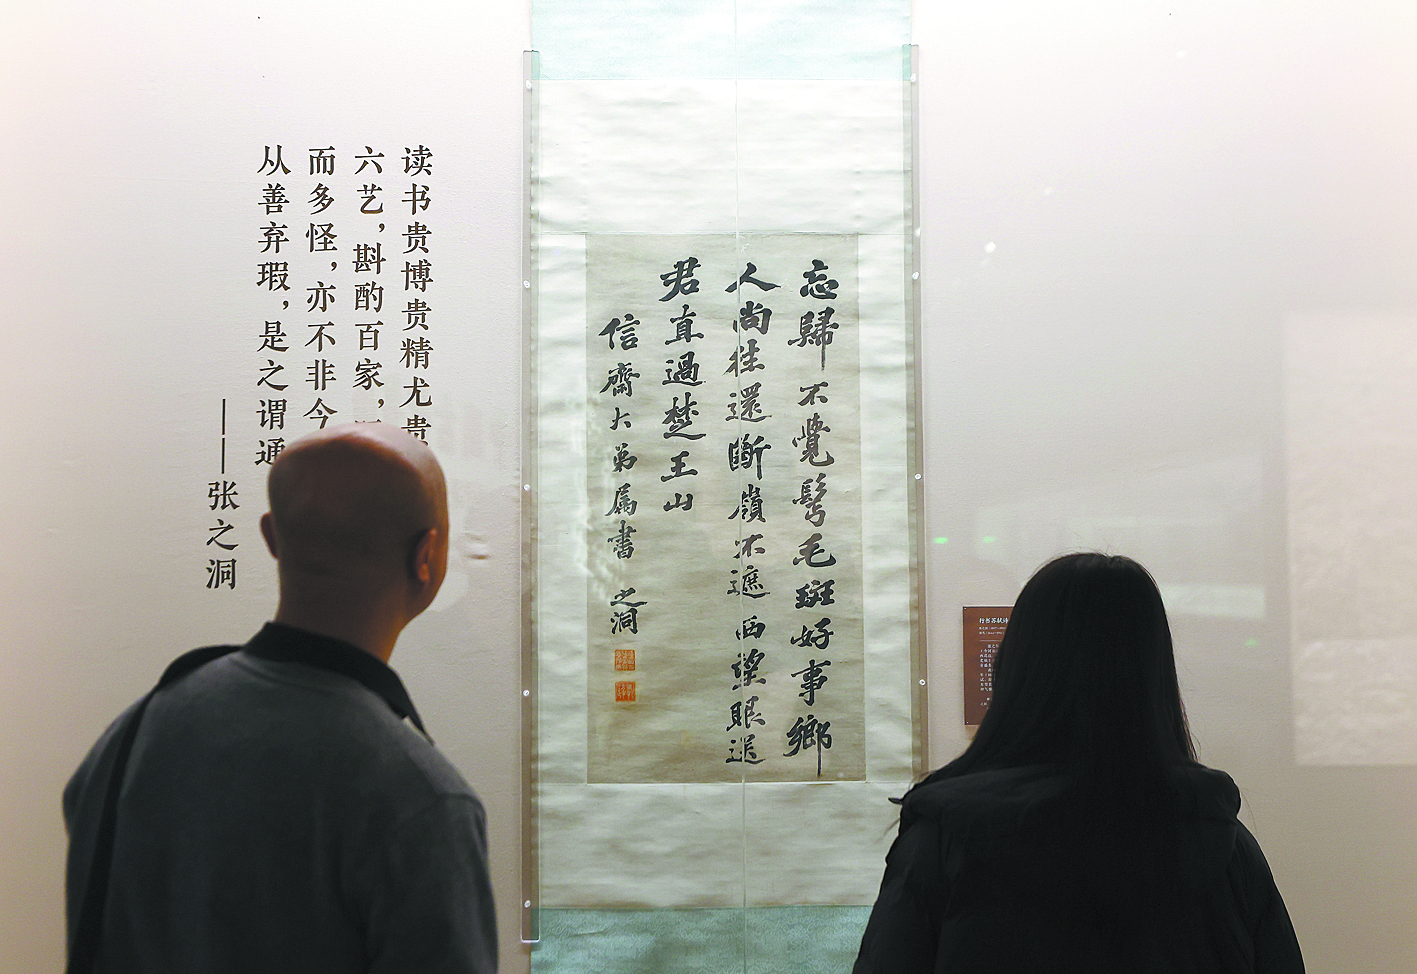 读书贵博贵精尤贵
六艺，斟酌百家，
而多怪，亦不非今
从善弃瑕，是之谓通
——张之洞
忘歸不覺鬢毛斑好事鄉
人尚往還斷嶺不遮西望眼送
君直過楚王山
信齋大弟属書 之洞
行书苏轼诗